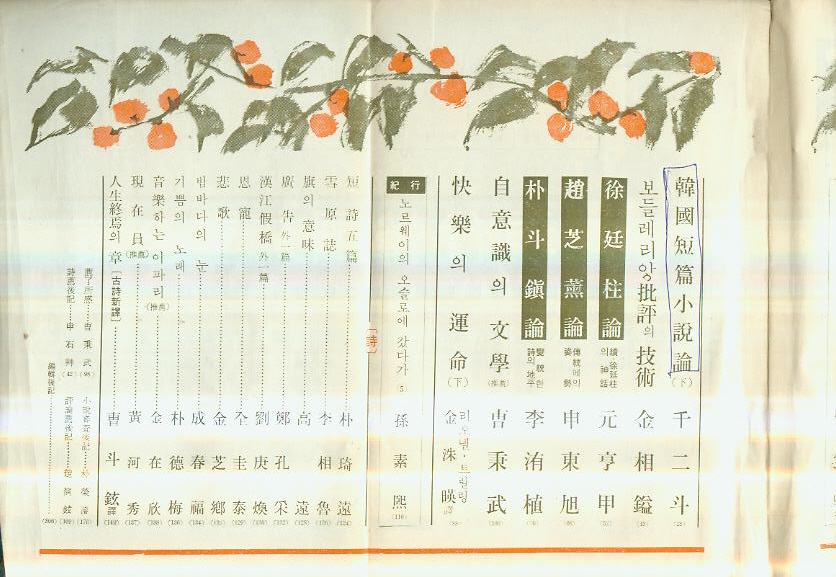 韓國短篇小說論(下) 千二斗
보들레리앙批評의 技術 金相鎰
徐廷柱論 續·徐廷柱의 神話 元亨甲
趙芝薰論 傳統에의 姿勢 申東旭
朴斗鎭論 變貌한 詩의 地平 李洧植
自意識의 文學(推薦) 曺秉武
快樂의 運命(下) 리오넬·트릴링 金洙暎譯
紀行 노르웨이의 오슬로에 갔다가 孫素熙
[詩]
短詩五篇 朴琦遠
雪原誌 李相魯
旗의 意味 高遠
廣告 外一篇 鄭孔采
漢江假橋 外一篇 劉庚煥
恩寵 全圭泰
悲歌 金芝鄕
밤바다의 눈 成春福
기쁨의 노래 朴德梅
音樂하는 이파리(推薦) 金在欣
現在員(推薦) 黃河秀
人生終焉의 章[古詩新譯] 曺斗鉉譯
薦了所感 曺秉武
小說審査後記
詩薦後記 申石艸
評論薦後記
編輯後記